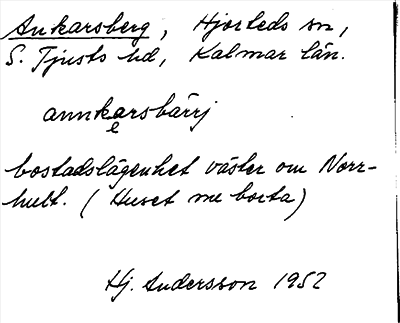 Ankarsberg, Hjorteds sn,
S. Tjusts hd, Kalmar län.
annkarsbärrj
e
bostadslägenhet väster om Norr-
hult. (Huset me borta)
Hj. Andersson 1952